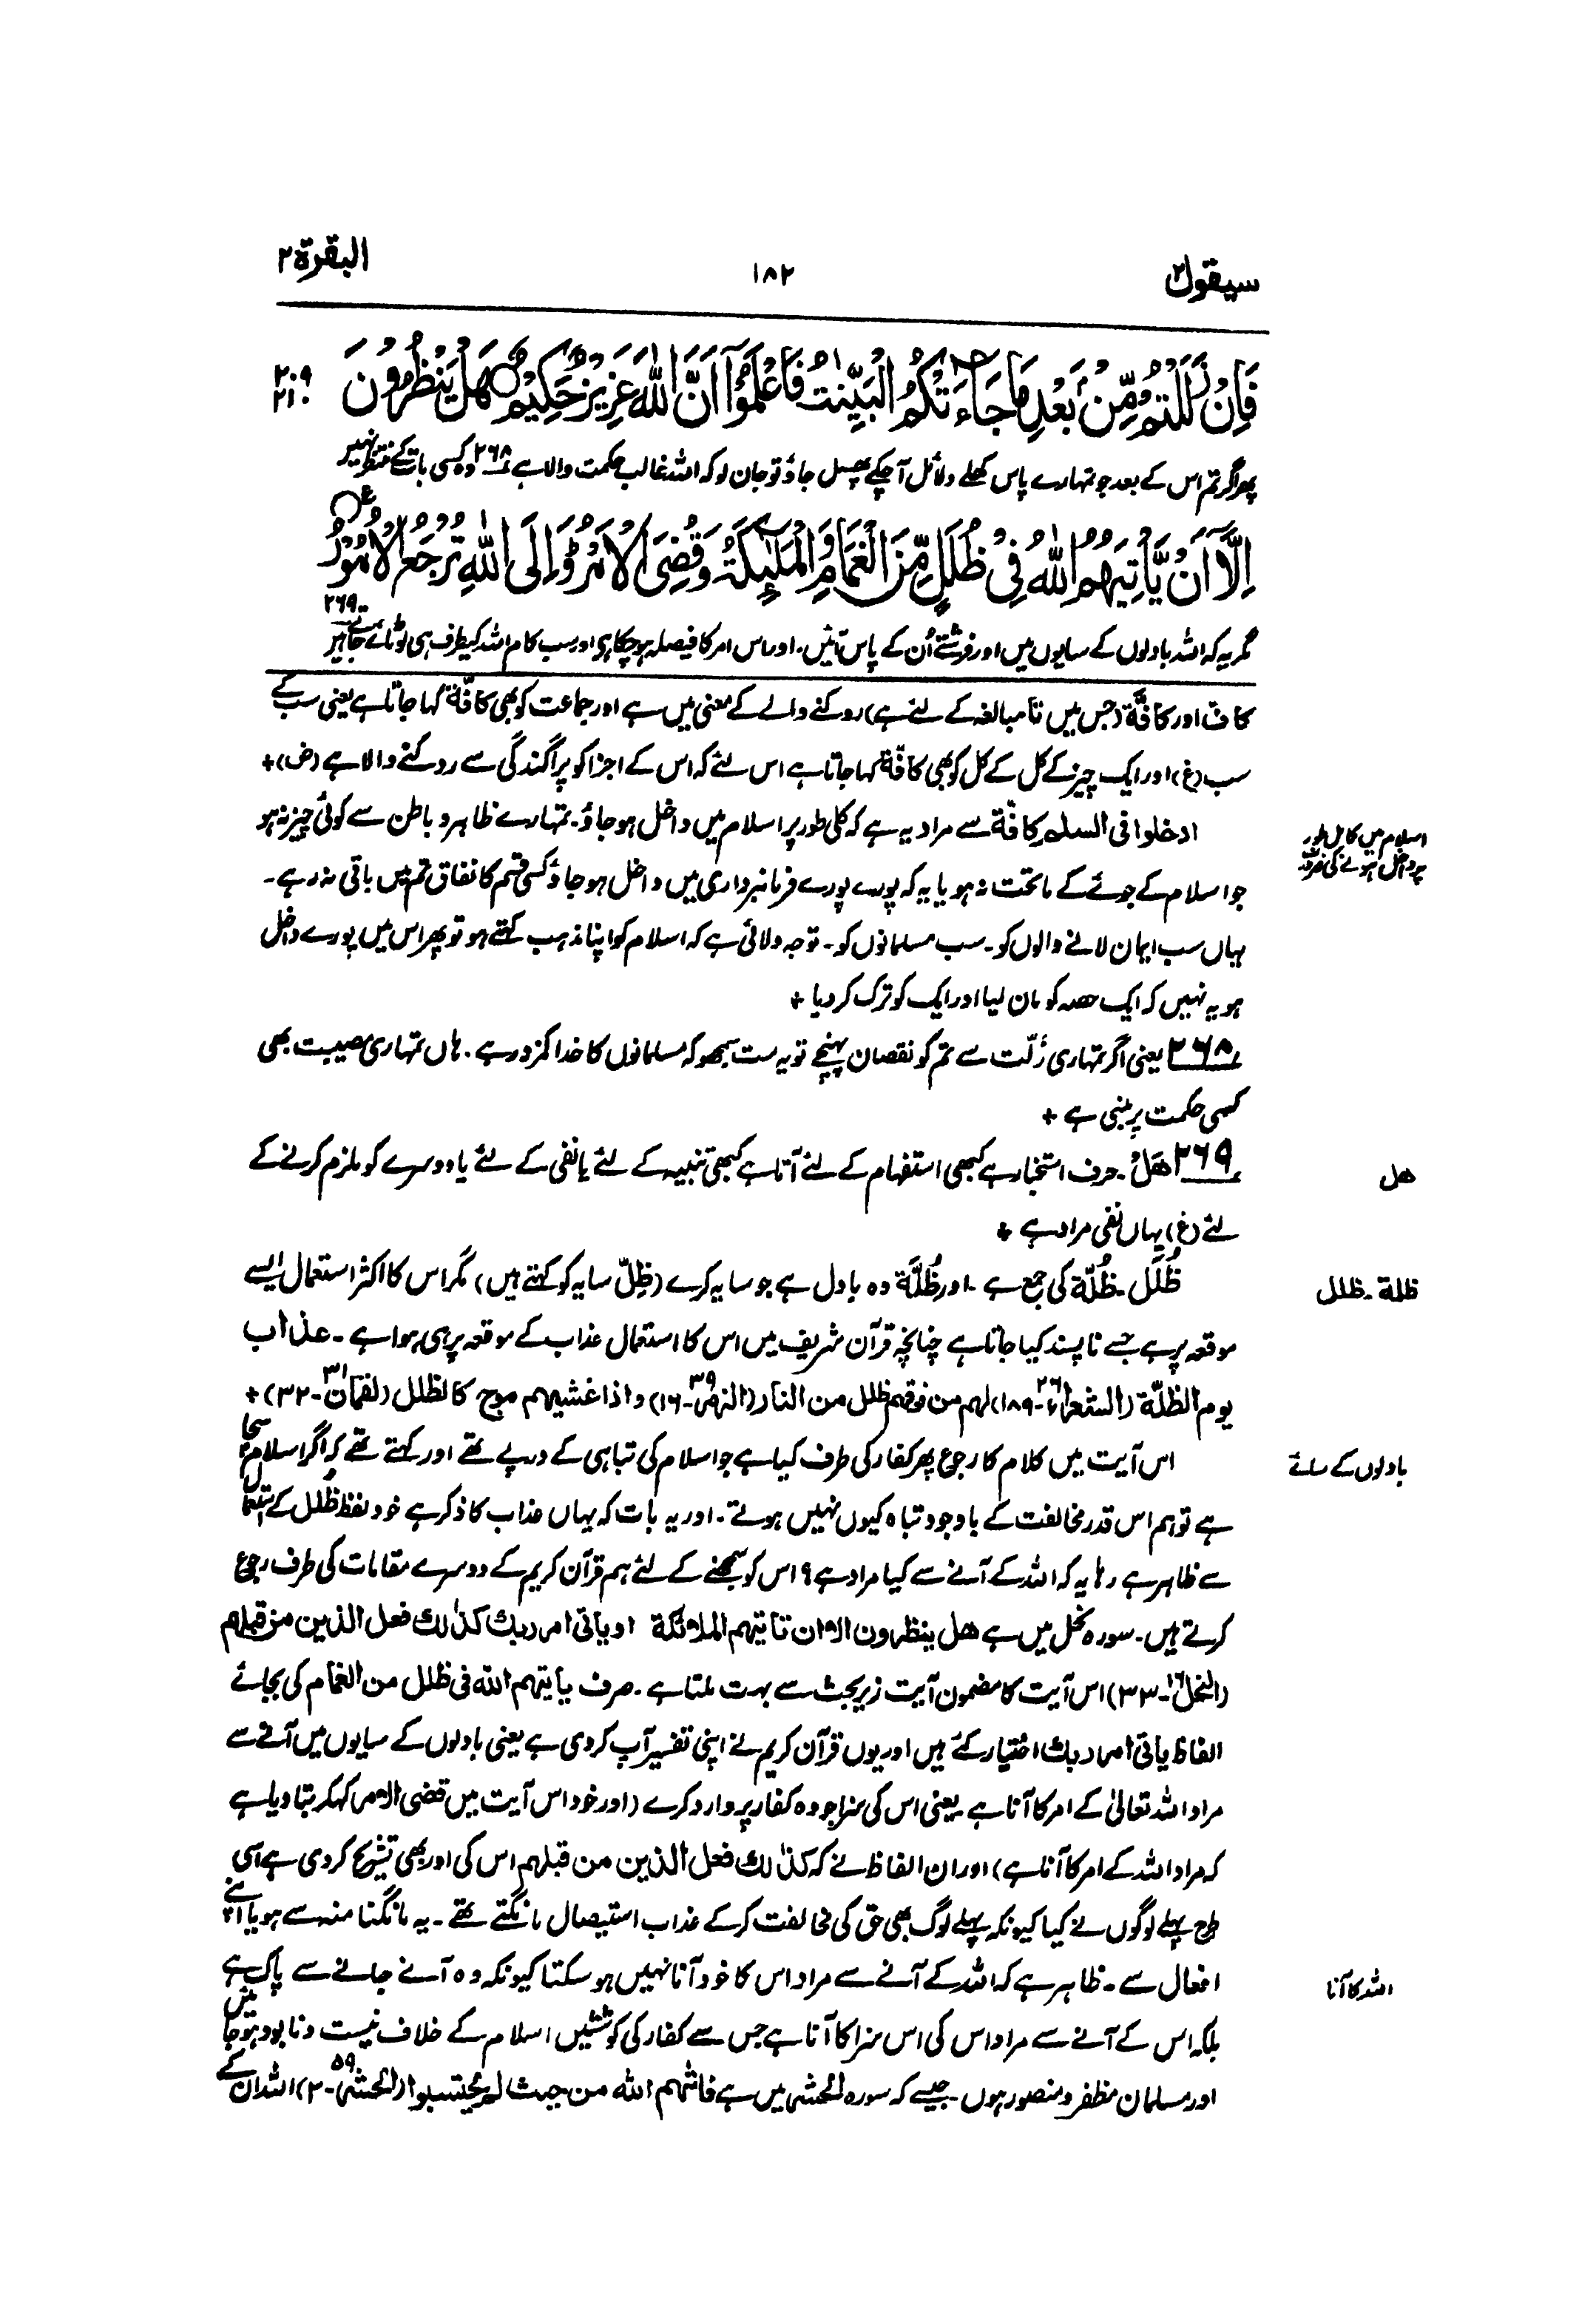 سیقول ۲
۱۸۲
البقرة ۲
فَاِنْ زَلَلْتُمْ مِّنْۢ بَعْدِ مَا جَآءَتْكُمُ الْبَيِّنٰتُ فَاعْلَمُوْٓا اَنَّ اللّٰهَ عَزِيْزٌ حَكِيْمٌ هَلْ يَنْظُرُوْنَ
۲۰۹
۲۱۰
پھر اگر تم اس کے بعد جو تمہارے پاس کھلے دلائل آچکے پھسل جاؤ تو جان لو کہ اللہ غالب حکمت والا ہے ۲۶۸ وہ کسی بات کے منتظر نہیں
اِلَّآ اَنْ يَّاْتِيَهُمُ اللّٰهُ فِيْ ظُلَلٍ مِّنَ الْغَمَامِ وَالْمَلٰٓئِكَةُ وَقُضِيَ الْاَمْرُ ؕ وَاِلَى اللّٰهِ تُرْجَعُ الْاُمُوْرُ ع
مگر یہ کہ اللہ بادلوں کے سایوں میں اور فرشتے اُن کے پاس آئیں۔ اور اس امر کا فیصلہ ہو چکا ہے اور سب کام اللہ کیطرف ہی لوٹائے جاتے ہیں ۲۶۹
کافّ اور کافّة (جس میں تا مبالغہ کے لئے ہے) روکنے والے کے معنی میں ہے اور جماعت کو بھی کافّة کہا جاتا ہے یعنی سب کے
سب (غ) اور ایک چیز کے کل کے کل کو بھی کافّة کہا جاتا ہے اس لئے کہ اس کے اجزا کو پراگندگی سے روکنے والا ہے (ض)+
ادخلوا فی السلم کافّة سے مراد یہ ہے کہ کلی طور پر اسلام میں داخل ہو جاؤ۔ تمہارے ظاہر و باطن سے کوئی چیز نہ ہو
اسلام میں کامل طور
پر داخل ہونے کی ضرورت
جو اسلام کے جوئے کے ماتحت نہ ہو یا یہ کہ پورے پورے فرمانبرداری میں داخل ہو جاؤ کسی قسم کا نفاق تم میں باقی نہ رہے۔
یہاں سب ایمان لانے والوں کو۔ سب مسلمانوں کو۔ توجہ دلائی ہے کہ اسلام کو اپنا مذہب کہتے ہو تو پھر اس میں پورے داخل
ہو یہ نہیں کہ ایک حصہ کو مان لیا اور ایک کو ترک کر دیا +
۲۶۸ یعنی اگر تمہاری زلّت سے تم کو نقصان پہنچے تو یہ مت سمجھو کہ مسلمانوں کا خدا کمزور ہے۔ ہاں تمہاری مصیبت بھی
کسی حکمت پر مبنی ہے +
۲۶۹ هَلْ۔ حرف استخبار ہے کبھی استفہام کے لئے آتا ہے کبھی تنبیہ کے لئے یا نفی کے لئے یا دوسرے کو ملزم کرنے کے
هل
لئے (غ) یہاں نفی مراد ہے +
ظُلَل۔ ظُلّة کی جمع ہے۔ اور ظُلَّة وہ بادل ہے جو سایہ کرے (ظِلّ سایہ کو کہتے ہیں) مگر اس کا اکثر استعمال ایسے
ظلة۔ ظلل
موقعہ پر ہے جسے ناپسند کیا جاتا ہے چنانچہ قرآن شریف میں اس کا استعمال عذاب کے موقعہ پر ہی ہوا ہے۔ عذاب
یوم الظلّة (الشعراء ۲۶-۱۸۹) لهم من فوقهم ظلل من النار (الزمر ۳۹-۱۶) واذا غشیهم موج کالظلل (لقمان ۳۱-۳۲)+
اس آیت میں کلام کا رجوع پھر کفار کی طرف کیا ہے جو اسلام کی تباہی کے درپے تھے اور کہتے تھے کہ اگر اسلام سچا
بادلوں کے سائے
ہے تو ہم اس قدر مخالفت کے باوجود تباہ کیوں نہیں ہوتے۔ اور یہ بات کہ یہاں عذاب کا ذکر ہے خود لفظ ظُلل کے استعمال
سے ظاہر ہے رہا یہ کہ اللہ کے آنے سے کیا مراد ہے؟ اس کو سمجھنے کے لئے ہم قرآن کریم کے دوسرے مقامات کی طرف رجوع
کرتے ہیں۔ سورہ نحل میں ہے هل ینظرون الا ان تاتیهم الملائکة او یاتی امر ربك کذٰلك فعل الذین من قبلهم
(النحل ۱۶-۳۳) اس آیت کا مضمون آیت زیر بحث سے بہت ملتا ہے۔ صرف یأتیهم الله فی ظلل من الغمام کی بجائے
الفاظ یاتی امر ربك اختیار کئے ہیں اور یوں قرآن کریم نے اپنی تفسیر آپ کر دی ہے یعنی بادلوں کے سایوں میں آنے سے
مراد اللہ تعالیٰ کے امر کا آنا ہے یعنی اس کی سزا جو وہ کفار پر وارد کرے (اور خود اس آیت میں قضی الامر کہکر بتا دیا ہے
کہ مراد اللہ کے امر کا آنا ہے) اور ان الفاظ نے کہ کذٰلك فعل الذین من قبلهم اس کی اور بھی تشریح کر دی ہے اسی
طرح پہلے لوگوں نے کیا کیونکہ پہلے لوگ بھی حق کی مخالفت کر کے عذاب استیصال مانگتے تھے۔ یہ مانگنا منہ سے ہو یا اپنے
افعال سے۔ ظاہر ہے کہ اللہ کے آنے سے مراد اس کا خود آنا نہیں ہو سکتا کیونکہ وہ آنے جانے سے پاک ہے
اللہ کا آنا
بلکہ اس کے آنے سے مراد اس کی اس سزا کا آنا ہے جس سے کفار کی کوششیں اسلام کے خلاف نیست و نابود ہو جائیں
اور مسلمان مظفر و منصور ہوں۔ جیسے کہ سورہ الحشر میں ہے فاتٰهم الله من حیث لم یحتسبوا (الحشر ۵۹-۲) اللہ ان کے